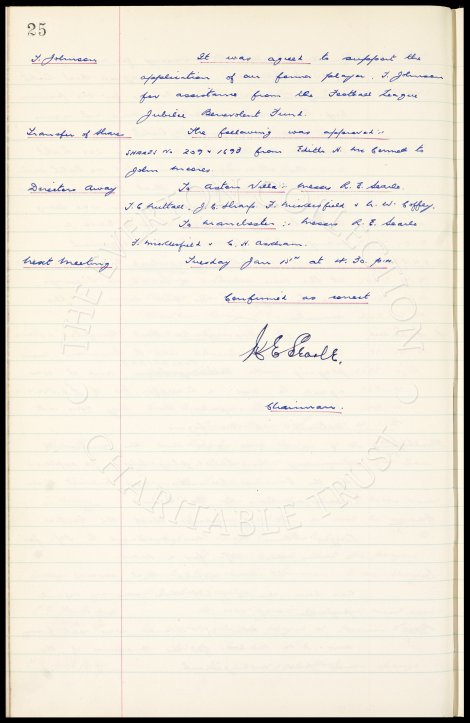 25
T. Johnson It was agreed to support the
application of our former player, T. Johnson
for assistance from the Football League
Jubilee Benevolent Fund.
Transfer of Share The following was approved :-
SHARES No 209 & 1693 from Edith H. Mc Connell to
John Moores.
Directors Away To Aston Villa :- Messrs R. E. Searle.
T. C. Nuttall, J. C. Sharp, F. Micklesfield & N. W. Coffey.
To Manchester :- Messrs R. E. Searle
F. Micklesfield & C. H. Askham.
Next Meeting Tuesday Jan 15th at 4.30. p.m.
Confirmed as correct
Searle.
Chairman.
THE EVERTON COLLECTION
CHARITABLE TRUST